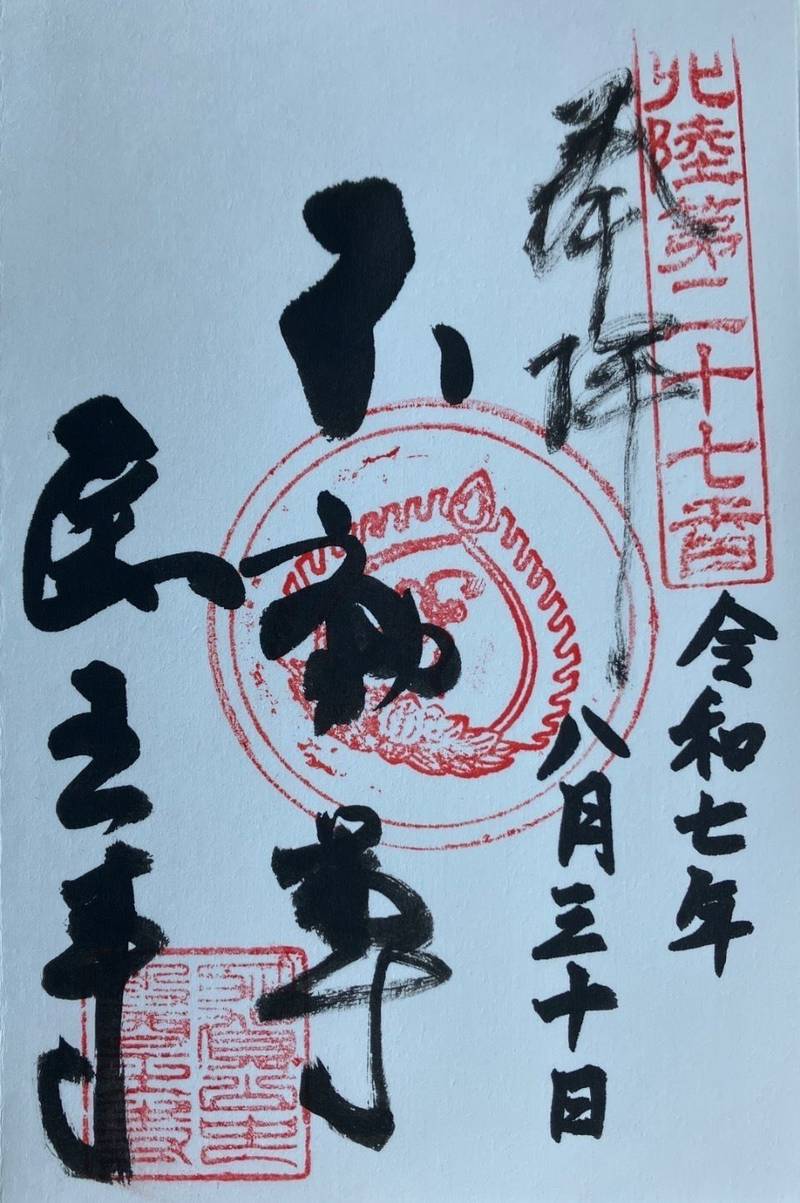 北陸第二十七番
奉拝
令和七年
八月三十日
不動尊
王寺